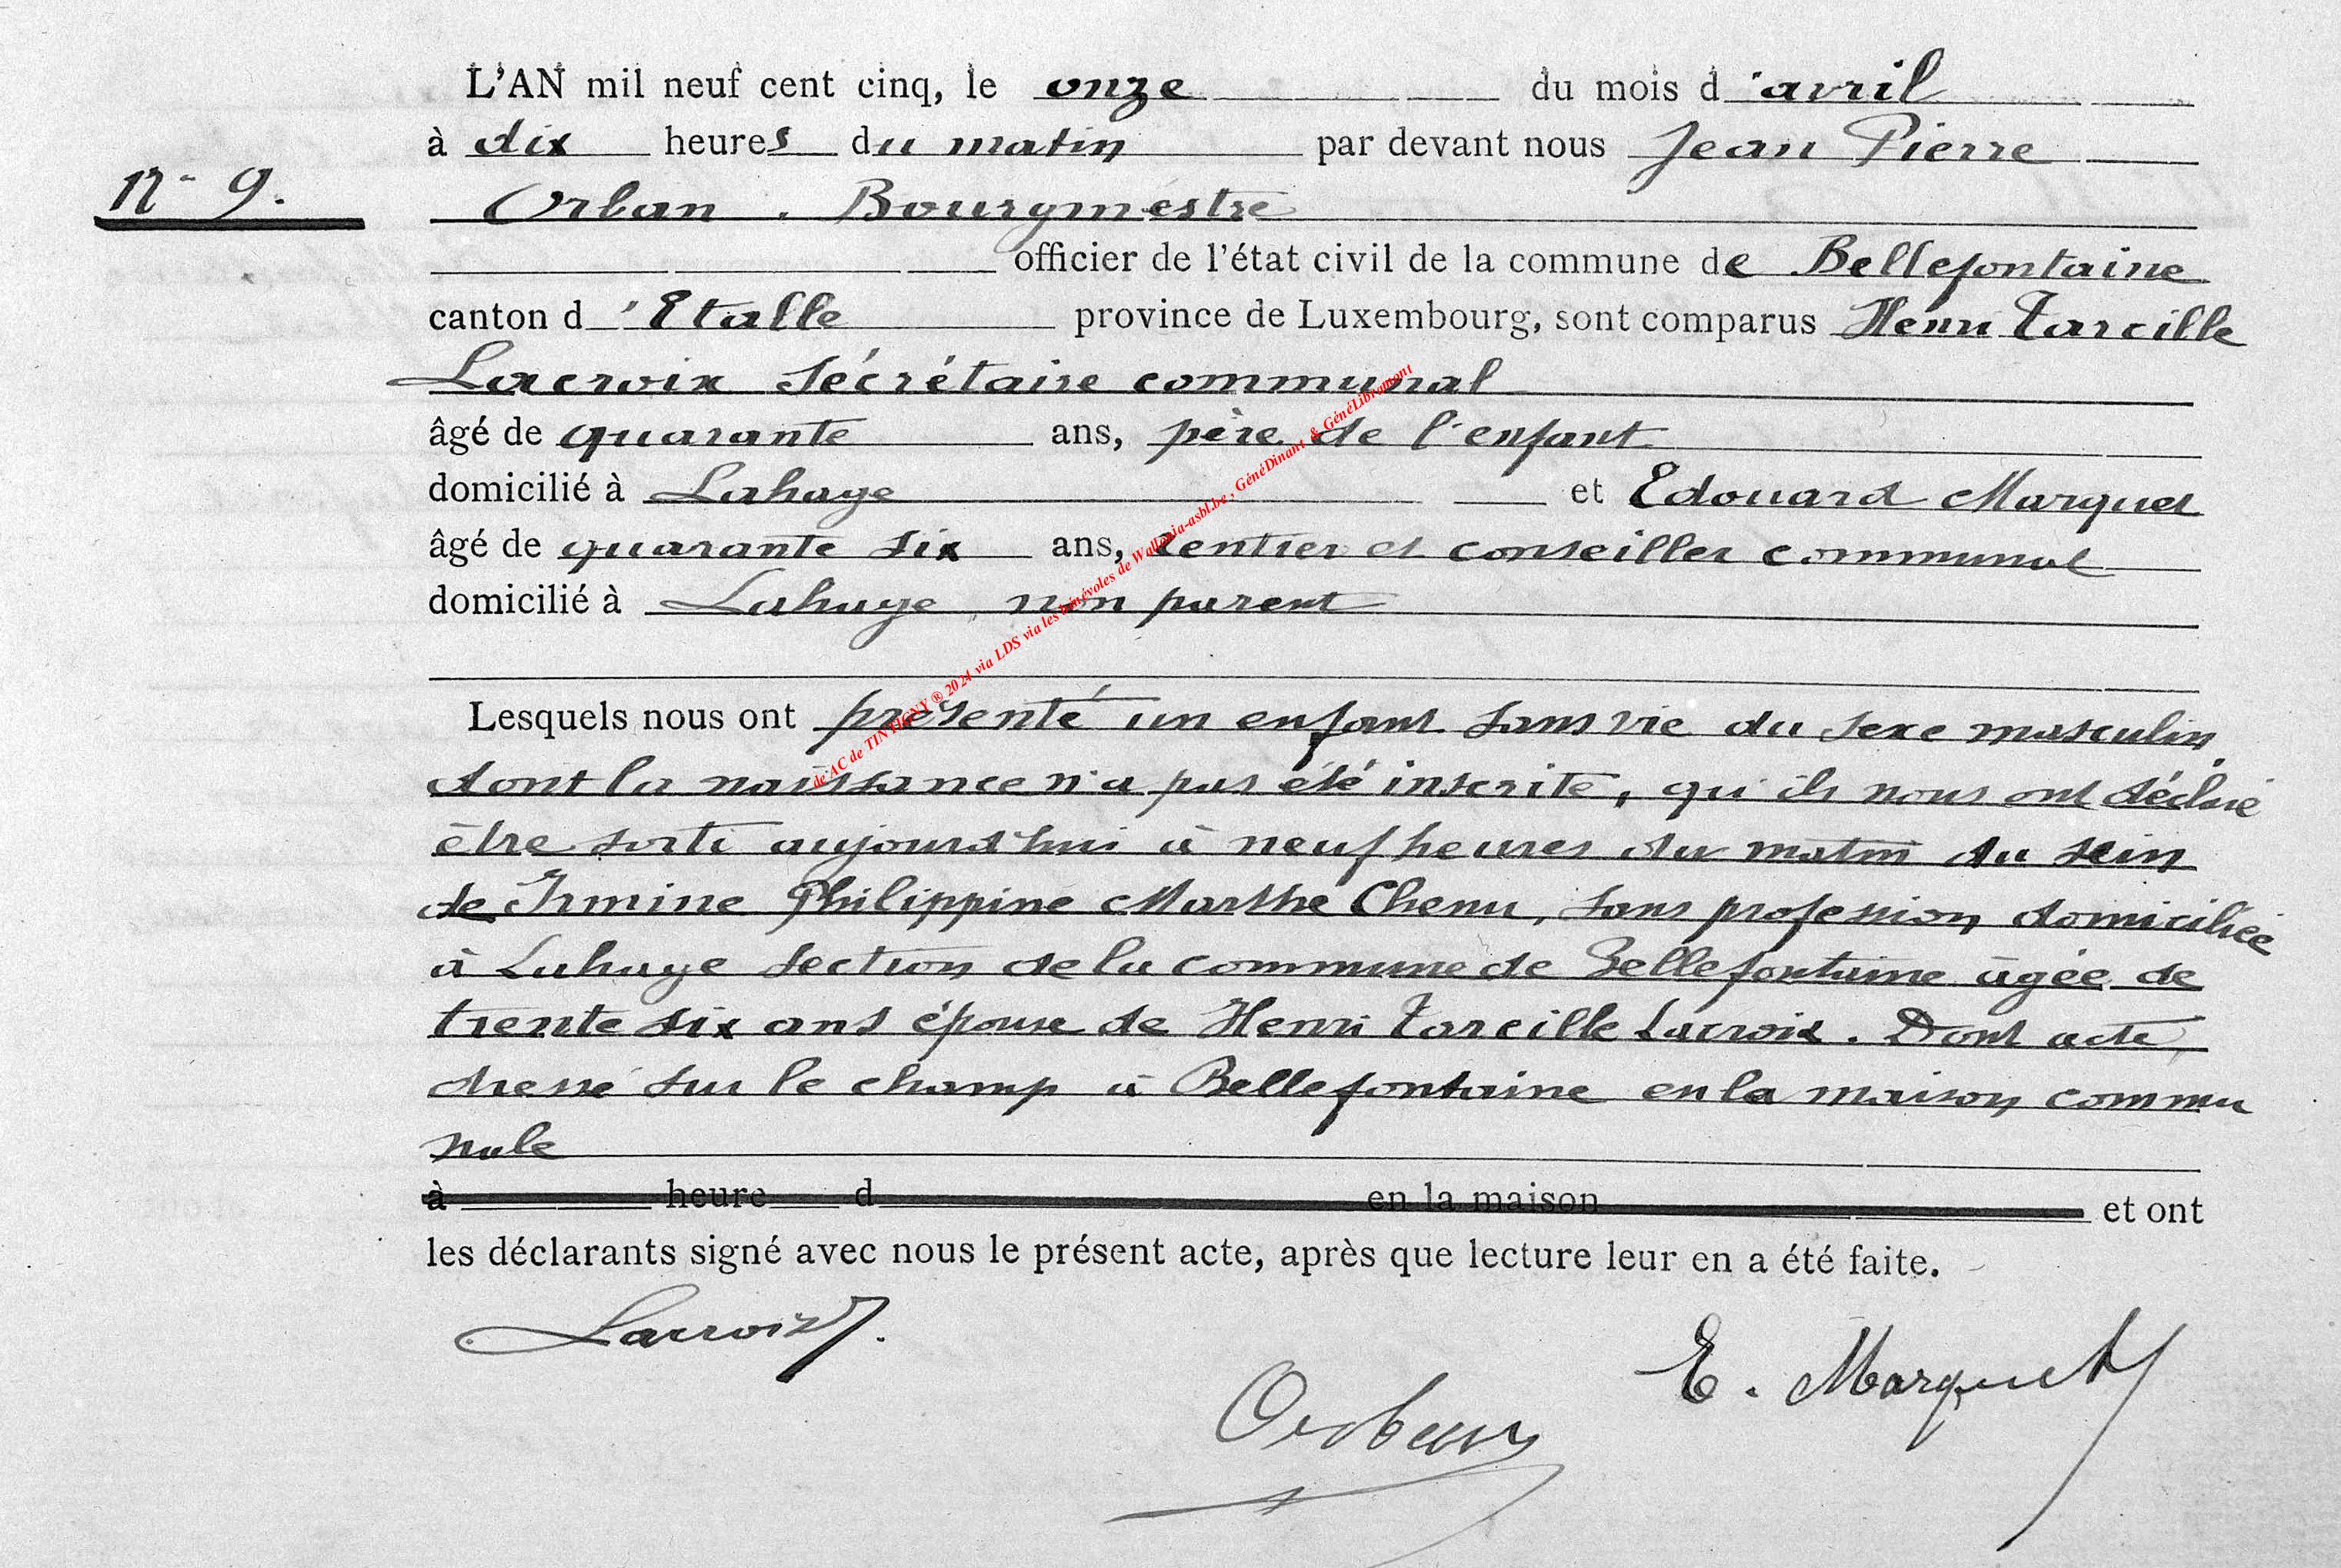 L'AN mil neuf cent cinq, le onze du mois d'avril
à dix heures du matin par devant nous Jean Pierre
N° 9.
Orban, Bourgmestre
officier de l'état civil de la commune de Bellefontaine
canton d'Etalle province de Luxembourg, sont comparus Henri Tarcille
Lacroix Sécrétaire communal
âgé de quarante ans, père de l'enfant
domicilié à Lahage et Edouard Marquet
âgé de quarante six ans, rentier et conseiller communal
domicilié à Lahage, non parent
Lesquels nous ont présenté un enfant sans vie du sexe masculin,
dont la naissance n'a pas été inscrite, qu'ils nous ont déclaré
être sorti aujourd'hui à neuf heures du matin du sein
de Irmine Philippine Marthe Chenu, sans profession domiciliée
à Lahage section de la commune de Bellefontaine âgée de
trente six ans épouse de Henri Tarcille Lacroix. Dont acte
dressé sur le champ à Bellefontaine en la maison commu
nale
à heure d en la maison et ont
les déclarants signé avec nous le présent acte, après que lecture leur en a été faite.
Lacroix
E. Marquet
Orban
de AC de TINTIGNY ® 2024 via LDS via les bénévoles de Wallonia-asbl.be, GénéDinant & GénéLibramont